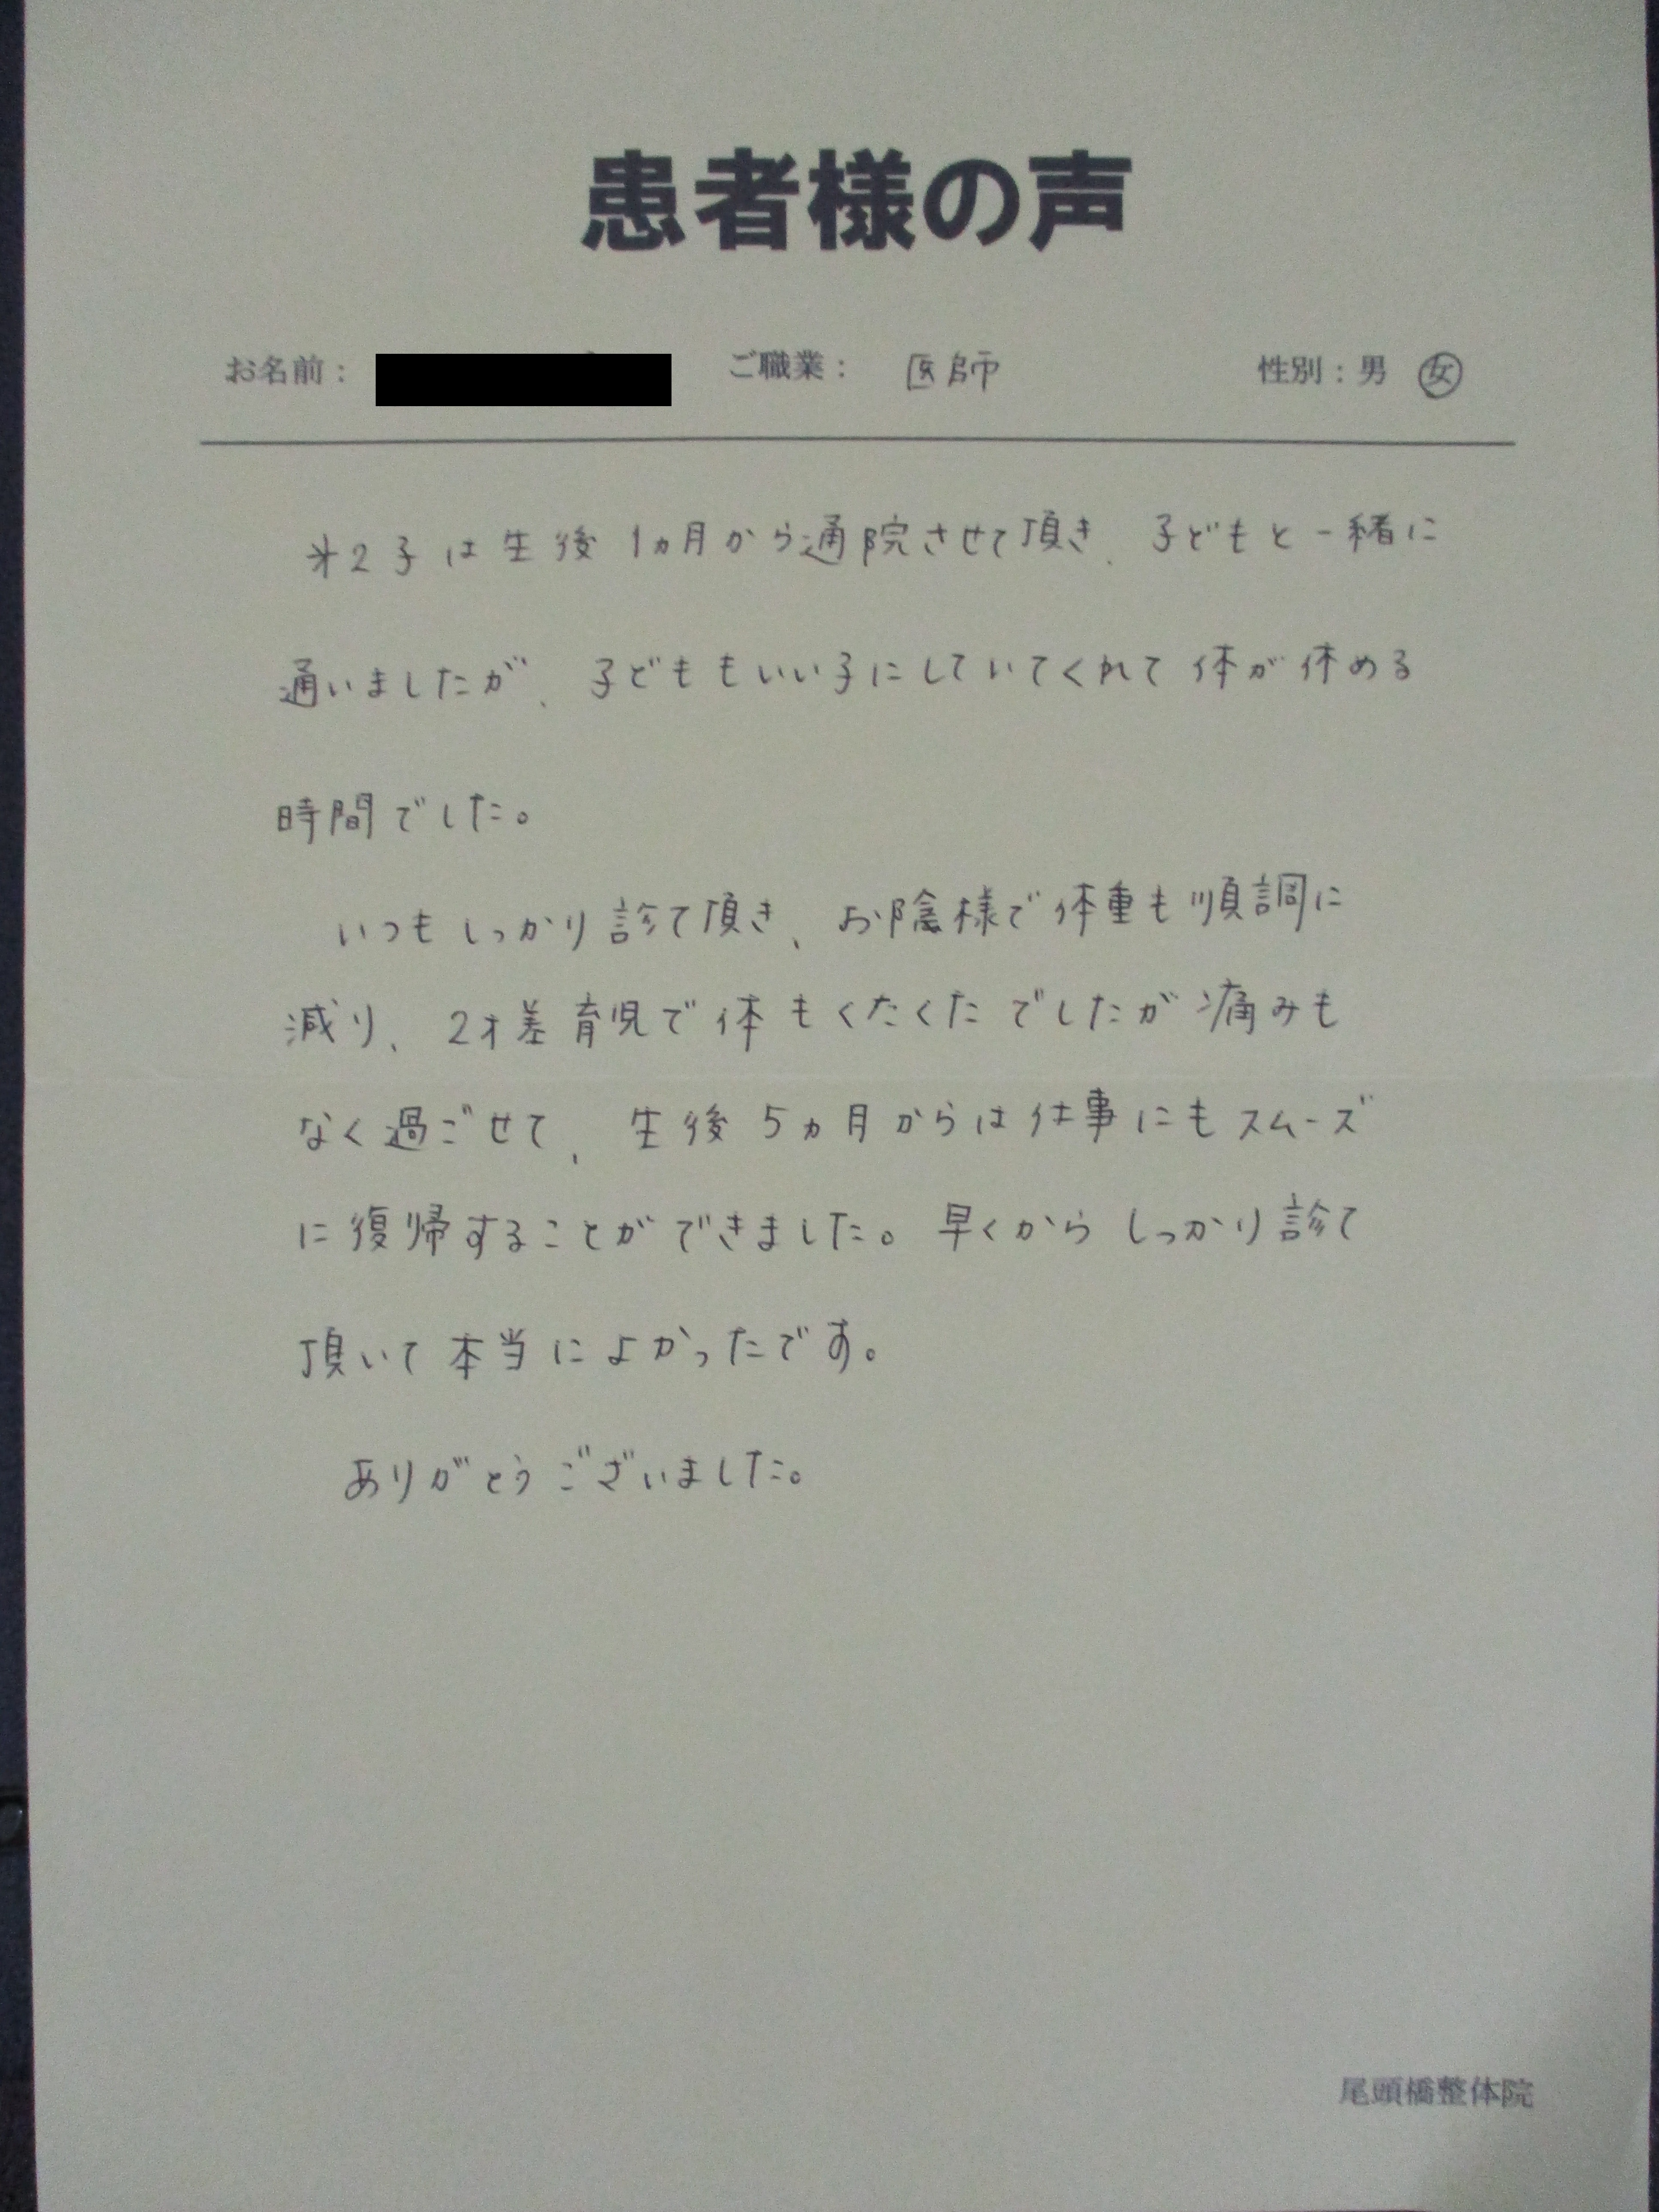 患者様の声
お名前： ご職業： 医師 性別：男 女
才2子は生後1ヵ月から通院させて頂き、子どもと一緒に
通いましたが、子どももいい子にしていてくれて体が休める
時間でした。
いつもしっかり診て頂き、お陰様で体重も順調に
減り、2才差育児で体もくたくたでしたが痛みも
なく過ごせて、生後5ヵ月からは仕事にもスムーズ
に復帰することができました。早くからしっかり診て
頂いて本当によかったです。
ありがとうございました。
尾頭橋整体院